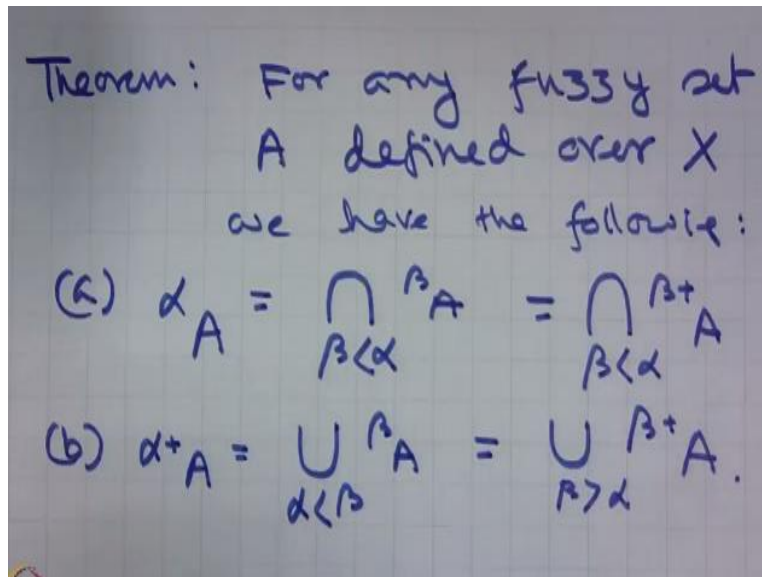 Theorem: For any fuzzy set
A defined over X
we have the following:
(a) ᵅA = ⋂_{β<α} ᵝA = ⋂_{β<α} ᵝ⁺A
(b) ᵅ⁺A = ⋃_{α<β} ᵝA = ⋃_{β>α} ᵝ⁺A.